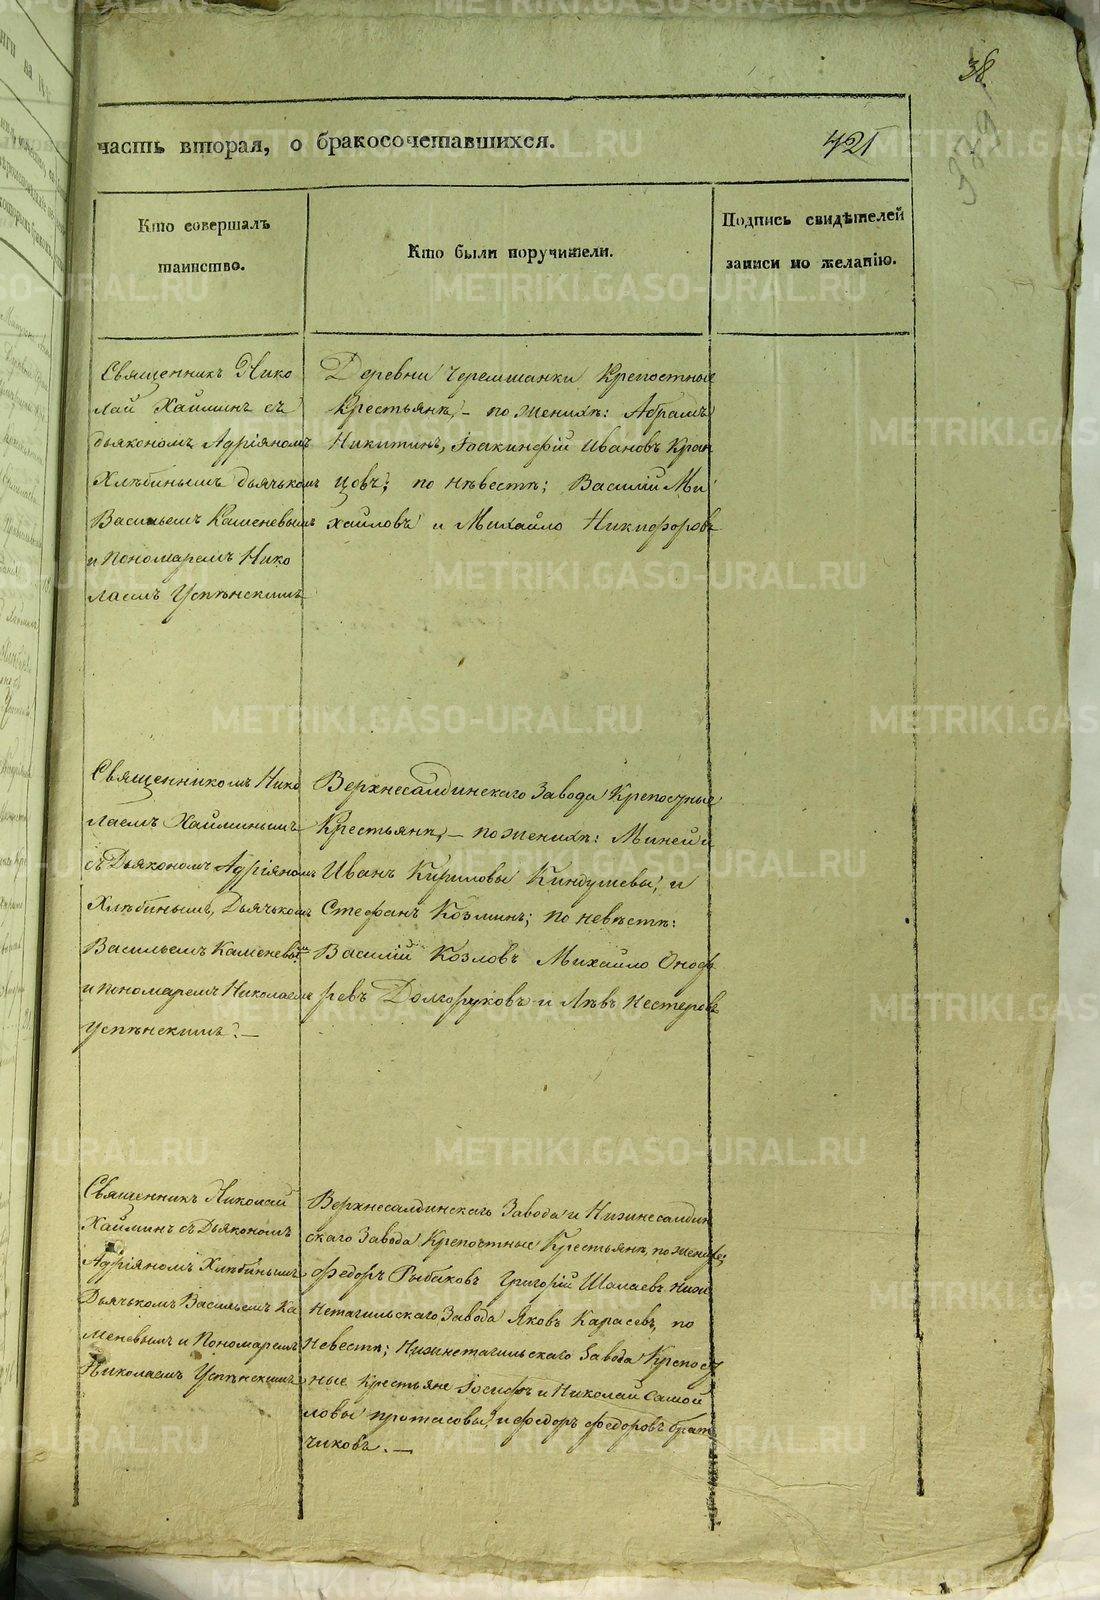 38.
339
часть вторая, о бракосочетавшихся.
421
Кто совершалъ
таинство.
Кто были поручители.
Подпись свидѣтелей
записи по желанію.
Священникъ Нико
лай Хайминъ съ
дьякономъ Адріяномъ
Хлѣбинымъ дьячькомъ
Васильемъ Каменевымъ
и Пономаремъ Нико
лаемъ Успѣнскимъ
Деревни Черемшанки Крепостные
Крестьянѣ, – по женихѣ: Абрамъ
Никитинъ, Іоакинфій Ивановъ Кран
цовъ; по нѣвестѣ; Василій Ми
хайловъ и Михайло Никифоровъ
Священникомъ Нико
лаемъ Хайминымъ
съ Дьякономъ Адріяномъ
Хлѣбинымъ, Дьячькомъ
Васильемъ Каменевымъ
и пономаремъ Николаемъ
Успѣнскимъ. —
Верхнесалдинскаго Завода Крепостные
Крестьянѣ, – по женихѣ: Миней и
Иванъ Кириловы Киндушевы, и
Стефанъ Козминъ; по невѣстѣ:
Василій Козловъ Михайло Оноф
ревъ Долгоруковъ и Лѣвъ Нестеровъ
Священникъ Николай
Хайминъ съ Дьякономъ
Адріяномъ Хлѣбинымъ
Дьячькомъ Васильемъ Ка
меневымъ и Пономаремъ
Николаемъ Успѣнскимъ
Верхнесалдинскаго Завода и Нижнесалдин
скаго Завода Крепостные Крестьянѣ, по женихѣ;
Федоръ Рыбаковъ Григорій Шалаевъ Нижн
нетагильскаго Завода Яковъ Карасевъ, по
невестѣ; Нижнетагильскаго Завода Крепост
ные крестьяне Іосифъ и Николай Самой
ловы протасовы, и федоръ федоровъ брат
чиковъ. —
METRIKI.GASO-URAL.RU